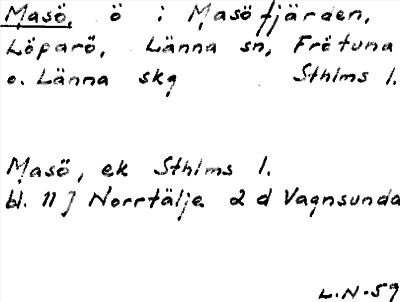 Masö, ö i Masöfjärden,
Löparö, Länna sn, Frötuna
o. Länna skg Sthlms l.
Masö, ek Sthlms l.
bl. 11 J Norrtälje 2 d Vagnsunda
L.N-59